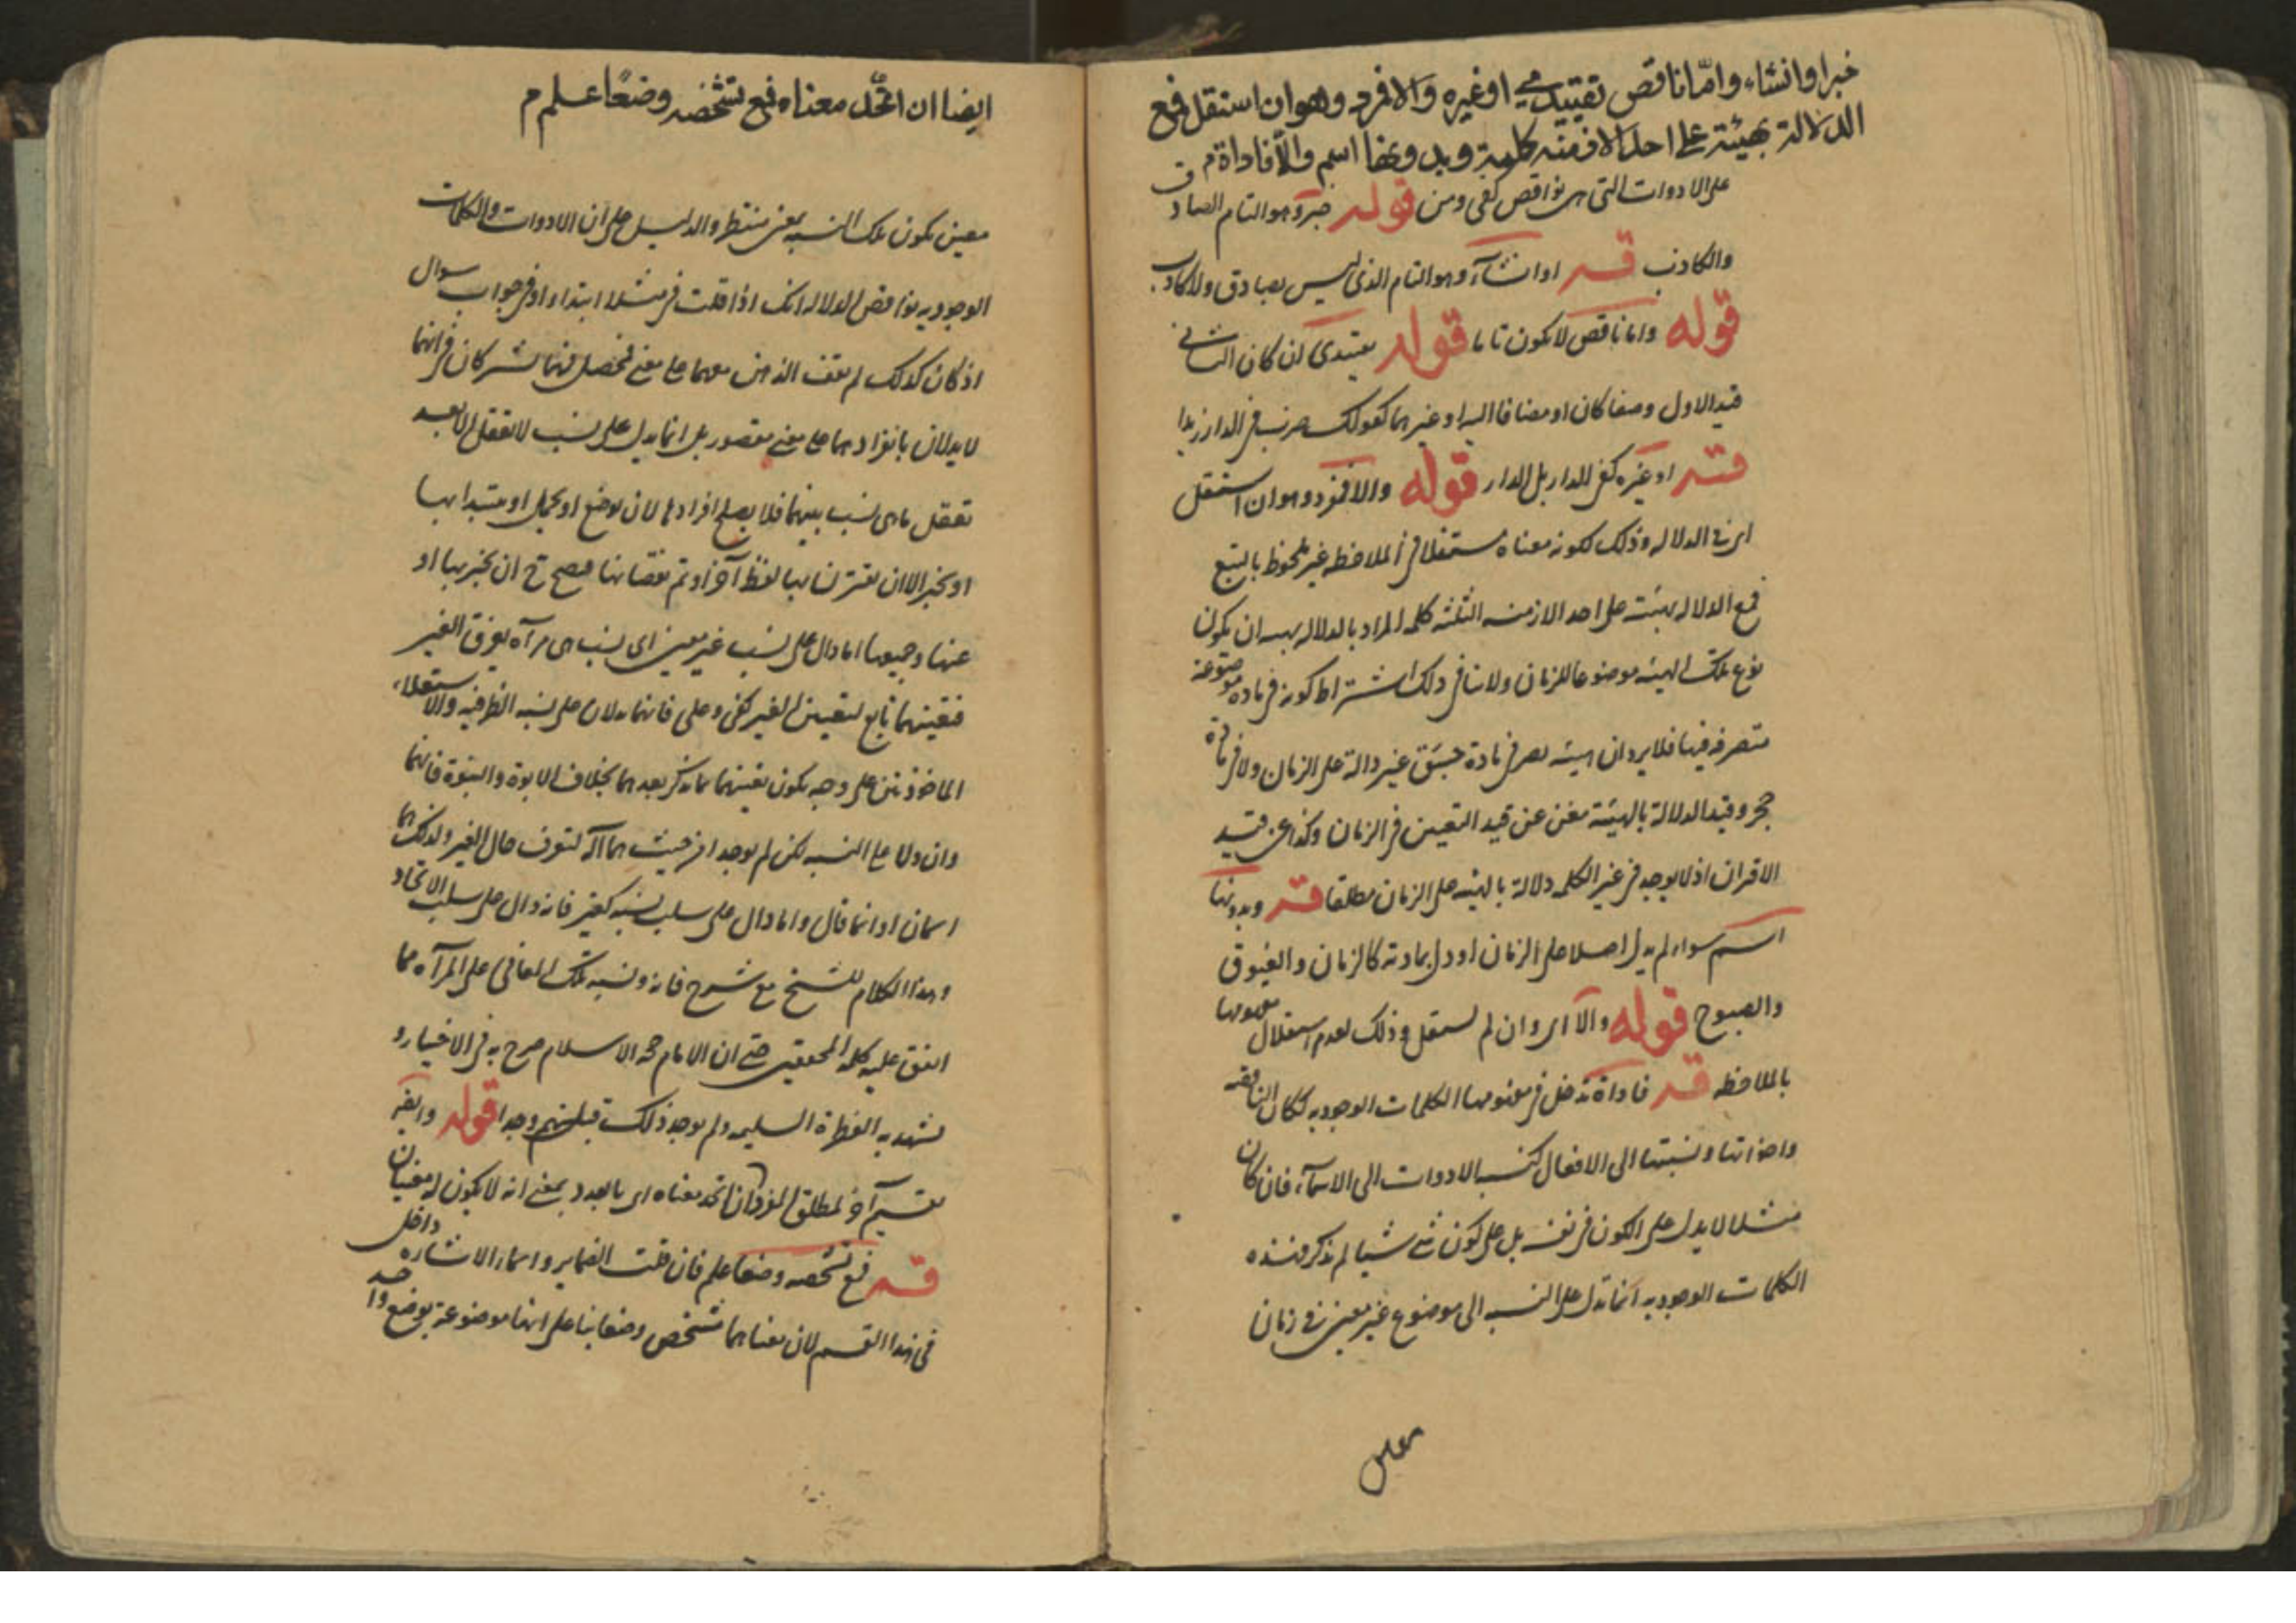 خبر او انشاء واما ناقص تقييدي او غيره والا فمفرد وهو ان استقل فمع
الدلالة بهيئته على احد الازمنة كلمة وبدونها اسم والا فاداة م
على الادوات التى هى نواقص كفى ومن قوله خبر وهو التام الصادق
والكاذب قـــه او انشاء وهو التام الذى ليس بصادق ولا كاذب
قوله واما ناقص لا يكون تاما قوله تقييدى ان كان الثانى
قيد الاول وصفا كان او مضافا اليه او غيرهما كقولك ضرب فى الدار زيدا
قـــه او غيره كفى الدار بل الدار قوله والا فمفرد وهو ان استقل
اى فى الدلاله وذلك لكونه معناه مستقلا فى الملاحظه غير ملحوظ بالتبع
فمع الدلاله بهيئته على احد الازمنه الثلثه كلمه المراد بالدلاله بهيئته ان يكون
نوع تلك الهيئه موضوعا للزمان ولا ينافى ذلك اشتراط كونه فى ماده موضوعة
متصرفه فيها فلا يرد ان هيئه نصر فى مادة جسق غير دالة على الزمان ولا فى مادة
حجر وقيد الدلالة بالهيئة مغن عن قيد التعيين فى الزمان وكذا عن قيد
الاقتران اذ لا يوجد فى غير الكلمه دلالة بالهيئه على الزمان مطلقا قـــه وبدونها
اسم سواء لم يدل اصلا على الزمان او دل بمادته كالزمان والغبوق
والصبوح قوله والا اى وان لم يستقل وذلك لعدم استقلال مفهومها
بالملاحظه قـــه فاداة تدخل فى مفهومها الكلمات الوجوديه ككان الناقصه
واخواتها ونسبتها الى الافعال كنسبه الادوات الى الاسماء فان كان
مثلا لا يدل على الكون فى نفسه بل على كون شئ شيئا لم يذكر فهذه
الكلمات الوجوديه انما تدل على النسبه الى موضوع غير معين فى زمان
معين
ايضا ان اتحد معناه فمع تشخصه وضعا علم م
معين يكون تلك النسبه بمعنى منتظر والدليل على ان الادوات والكلمات
الوجوديه نواقص الدلاله انك اذا قلت فى مثلا ابتداء او فى جواب سوال
اذ كان كذلك لم يقف الذهن معهما على معنى محصل فهما يشتركان فى انهما
لا يدلان بانفرادهما على معنى مقصور بل انما يدل على نسب لا تعقل الا بعد
تعقل ما هى نسب بينهما فلا يصلح افرادها لان توضع او تحمل او يبتدا بها
او يخبر الا ان يقترن بها لفظ آخر او تتم نقصانها فيصح ح ان يخبر بها او
عنها وجميعها اما دال على نسب غير معين اى نسب هى مرآة يعرف الغير
فتعينهما تابع لتعين الغير كفى وعلى فانهما يدلان على نسبه الظرفيه والاستعلاء
الماخوذتين على وجه يكون تعينهما بما يذكر بعدهما بخلاف الابوة والبنوة فانهما
وان دلا على النسبه لكن لم يوجدا من حيث هما آله لتعرف حال الغير ولذلك هما
اسمان او انما قال واما دال على سلب نسبه كغير فانه دال على سلب الاتحاد
وهذا الكلام للشيخ مع شرح فانه ونسبه تلك المعانى على المرآة مما
اتفق عليه كلمه المحققين حتى ان الامام حجه الاسلام صرح به فى الاخيار و
يشهد به الفطرة السليمه ولم يوجد ذلك قبلهم وجدا قوله وايضا
تقسيم آخر لمطلق المفرد ان اتحد معناه اى بالعدد بمعنى انه لا يكون له معنيان
قـــه فمع تشخصه وضعا علم فان قلت الضماير واسماء الاشاره داخل
فى هذا القسم لان معناهما مشخص وضعا بناء على انها موضوعة بوضع واحد